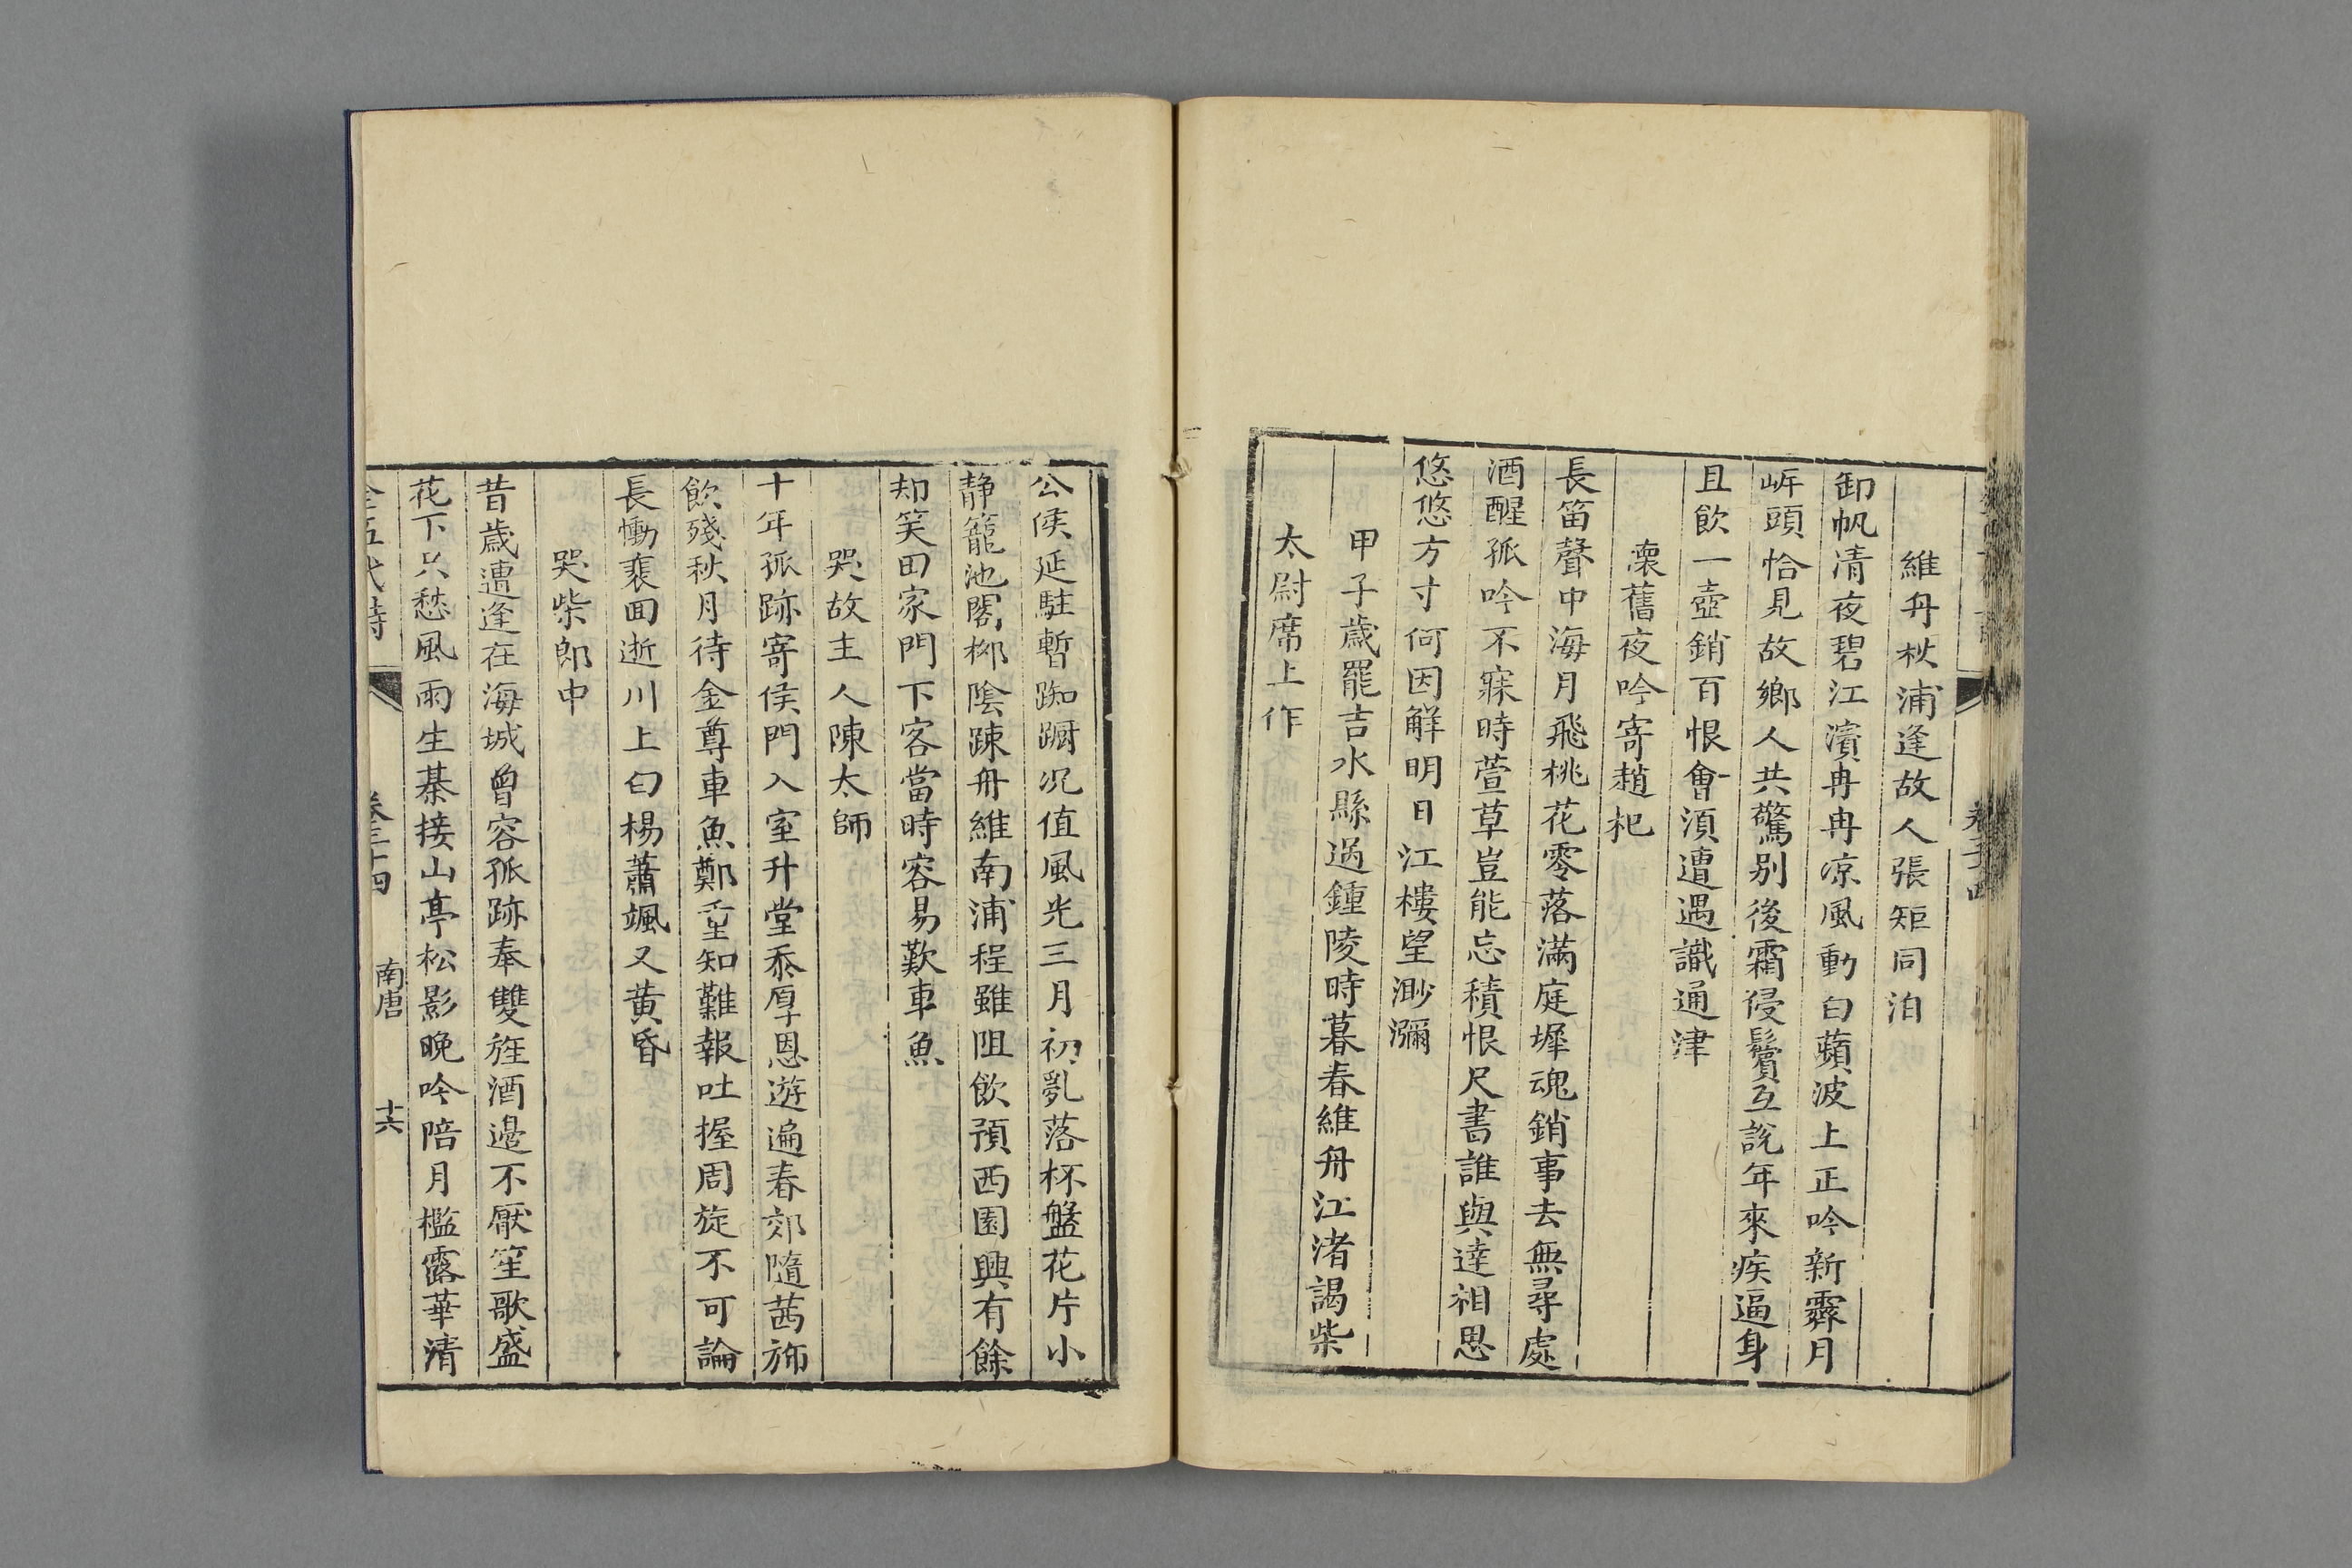 維舟秋浦逢故人張矩同泊
卸帆清夜碧江濱冉冉凉風動白蘋波上正吟新霽月
㟁頭恰見故鄉人共驚别後霜侵鬢互説年來疾逼身
且飲一壺銷百恨會須遭遇識通津
懷舊夜吟寄趙杞
長笛聲中海月飛桃花零落滿庭墀魂銷事去無尋處
酒醒孤吟不寐時萱草豈能忘積恨尺書誰與達相思
悠悠方寸何因解明日江樓望渺瀰
甲子歲罷吉水縣過鍾陵時暮春維舟江渚謁柴
太尉席上作
公侯延駐暫踟蹰况值風光三月初亂落杯盤花片小
静籠池閣柳陰踈舟維南浦程雖阻飲預西園興有餘
却笑田家門下客當時容易歎車魚
哭故主人陳太師
十年孤跡寄侯門入室升堂忝厚恩遊遍春郊隨茜斾
飲殘秋月待金尊車魚鄭重知難報吐握周旋不可論
長慟裴回逝川上白楊蕭颯又黄昏
哭柴郎中
昔歲遭逢在海城曾容孤跡奉雙旌酒邊不厭笙歌盛
花下只愁風雨生棊接山亭松影晚吟陪月檻露華清
全五代詩 卷三十四 南唐 十六